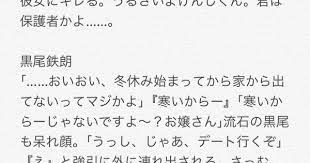 彼女にキレる。うるさいよけんじくん。君は
保護者かよ……。
黒尾鉄朗
「……おいおい、冬休み始まってから家から出
てないってマジかよ」『寒いからー』「寒いか
らーじゃないですよ〜？お嬢さん」流石の黒尾
も呆れ顔。「うっし、じゃあ、デート行くぞ」
『え』と強引に外に連れ出される。さっむ